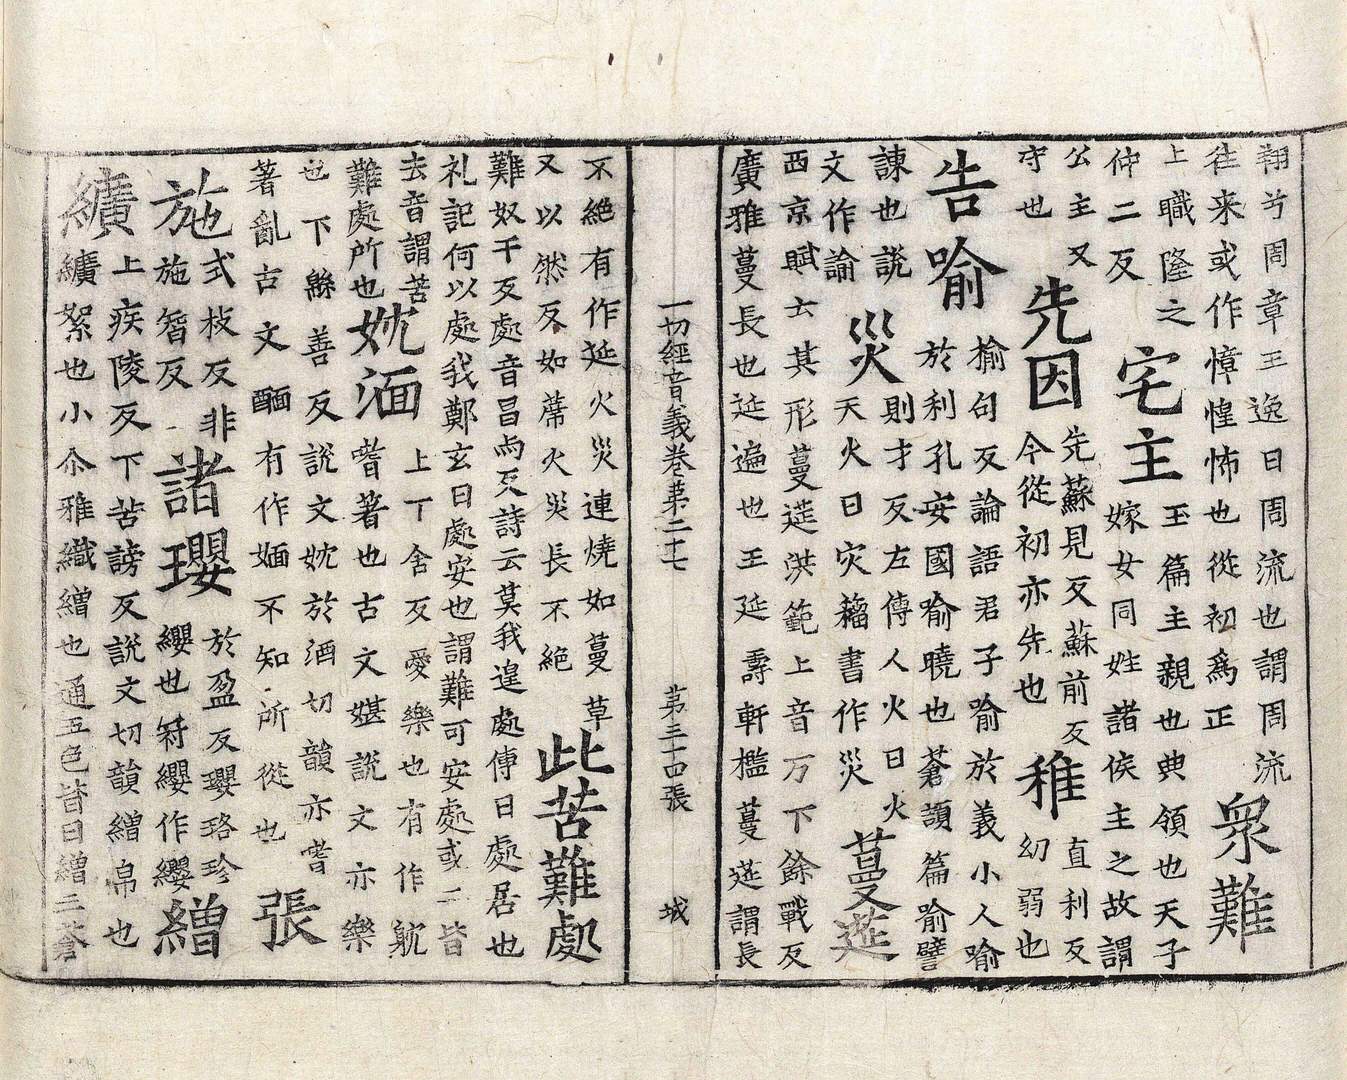 翔兮周章王逸曰周流也謂周流
往来或作慞惶怖也從初為正
衆難
上職隆之
仲二反
宅主
玉篇主親也典領也天子
嫁女同姓諸侯主之故謂
公主又
守也
先因
先蘇見反蘇前反
今從初亦先也
稚
直利反
幼弱也
告喻
榆句反論語君子喻於義小人喻
於利孔安國喻曉也蒼頡篇喻譬
諫也說
文作論
災
則才反左傳人火曰火
天火曰灾籀書作災
蔓莚
西京賦云其形蔓莚洪範上音万下餘戰反
廣雅蔓長也莚遍也王延壽軒檻蔓莚謂長
一切經音義卷第二十七 第三十四張 城
不絕有作延火災連燒如蔓草
又以然反如蓆火災長不絕
此苦難處
難奴干反處音昌尚反詩云莫我遑處傳曰處居也
礼記何以處我鄭玄曰處安也謂難可安處或二皆
去音謂苦
難處所也
妉湎
上丁含反愛樂也有作躭
嗜著也古文媅說文亦樂
也下緜善反說文妉於酒切韻亦嗜
著亂古文䤄有作媔不知所從也
張施
式枝反非
施智反
諸瓔
於盈反瓔珞珍
纓也冠纓作纓
繒纊
上疾陵反下苦謗反說文切韻繒帛也
纊絮也小尒雅織繒也通五色皆曰繒三蒼